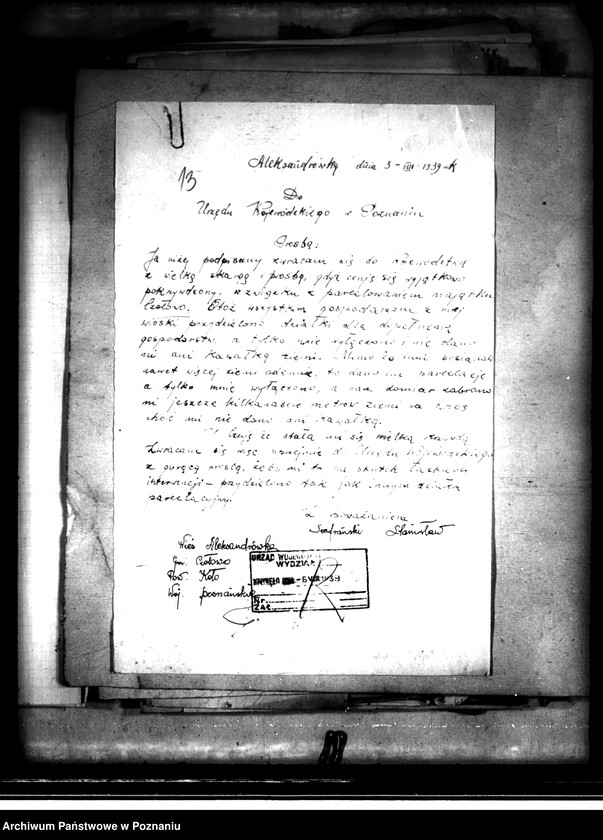 Aleksandrówka dnia 3-III-1939 rk
13
Do
Urzędu Wojewódzkiego w Poznaniu
Prośba:
Ja niżej podpisany zwracam się do
z wielką skargą i prośbą, gdyż czuję się wyjątkowo
pokrzywdzony, w związku z parcelowaniem majątku
Czołowo. Otóż wszystkim gospodarzom z mej
wioski przydzielono działki dla
gospodarstw, a tylko mnie wyłączono i nie dano
mi ani kawałka ziemi. Mimo że inni posiadali
nawet więcej ziemi odemnie, to dano im parcelację
a tylko mnie wyłączono, a na domiar zabrano
mi jeszcze kilkanaście metrów ziemi na
choć mi nie dano ani kawałka.
że stała mi się wielka krzywda
Zwracam się więc do Urzędu Wojewódzkiego
z gorącą prośbą, żeby mi to na skutek łaskawej
interwencji przydzielono tak jak innym działkę
parcelacyjną.
Z poważaniem
Szafrański Stanisław
Wieś Aleksandrówka
gm. Czołowo
Pow. Koło
Woj. poznańskie
URZĄD
WYDZIAŁ
Nr.
ZAŁ.
Archiwum Państwowe w Poznaniu